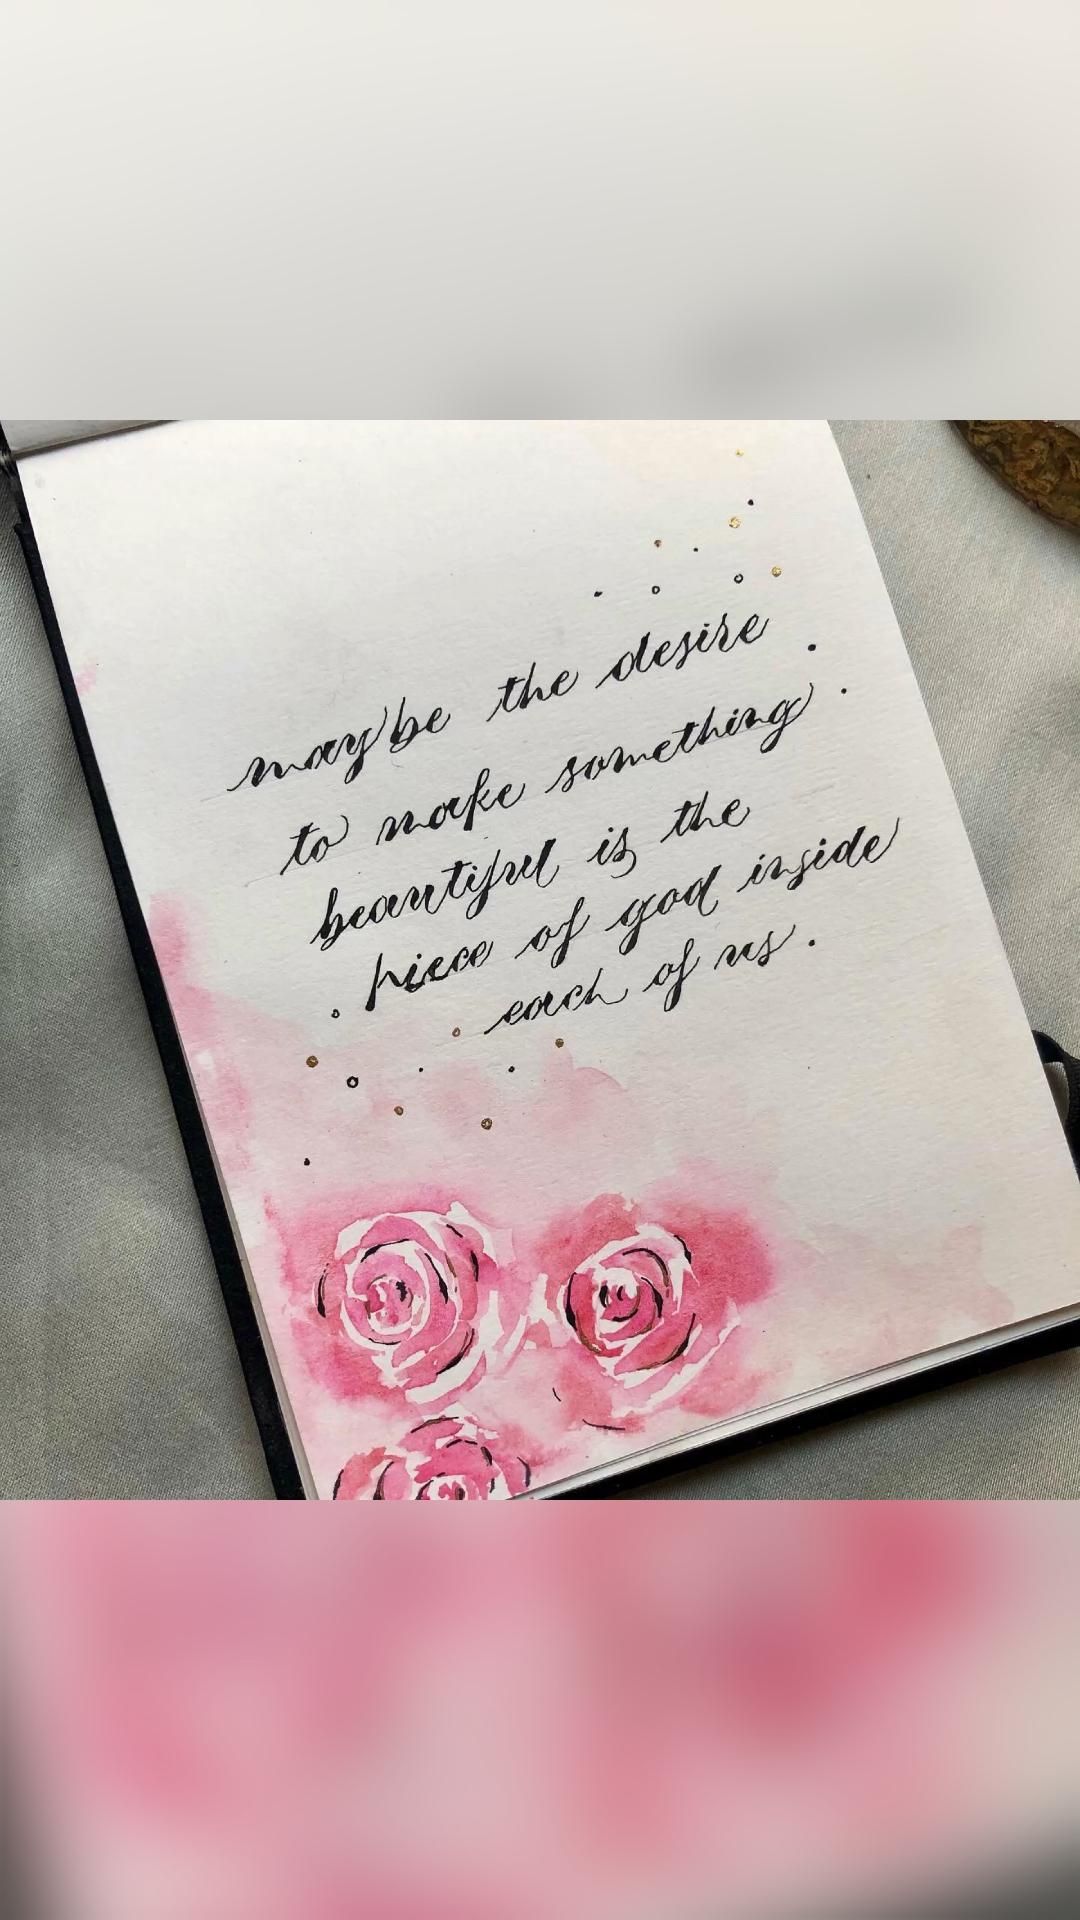 maybe the desire
to make something
beautiful is the
piece of god inside
each of us.